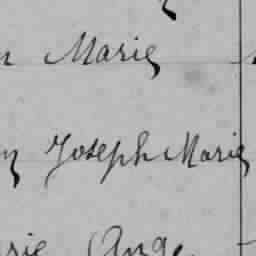 Marie
Joseph Marie
Ange